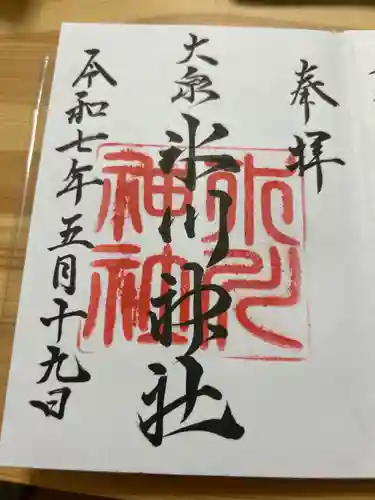 奉拝
大泉
氷川神社
氷川
神社
令和七年五月十九日